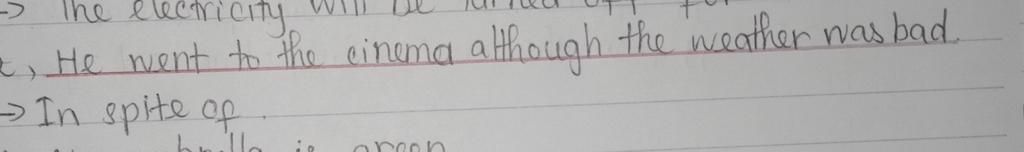 -> The electricity will be turned off for
c, He went to the cinema although the weather was bad.
-> In spite of.
is green